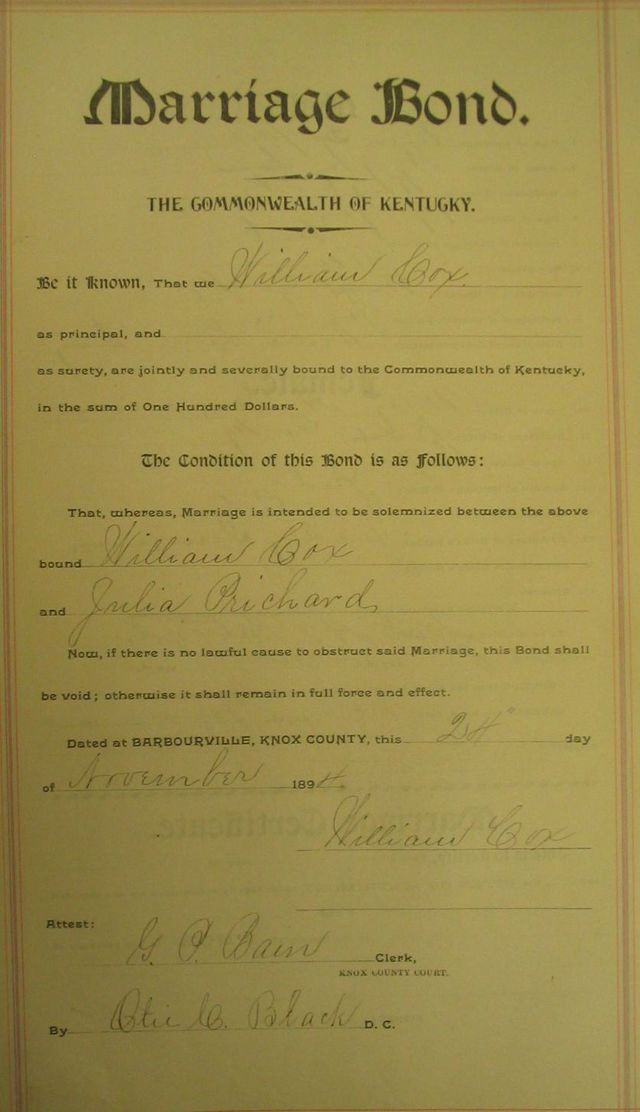 Marriage Bond.
THE COMMONWEALTH OF KENTUCKY.
Be it Known, That we William Cox.
as principal, and
as surety, are jointly and severally bound to the Commonwealth of Kentucky,
in the sum of One Hundred Dollars.
The Condition of this Bond is as Follows:
That, whereas, Marriage is intended to be solemnized between the above
bound William Cox
and Julia Prichard
Now, if there is no lawful cause to obstruct said Marriage, this Bond shall
be void; otherwise it shall remain in full force and effect.
Dated at BARBOURVILLE, KNOX COUNTY, this 24" day
of November 1894.
William Cox
Attest:
G. P. Bain Clerk,
KNOX COUNTY COURT.
By C. Black D. C.